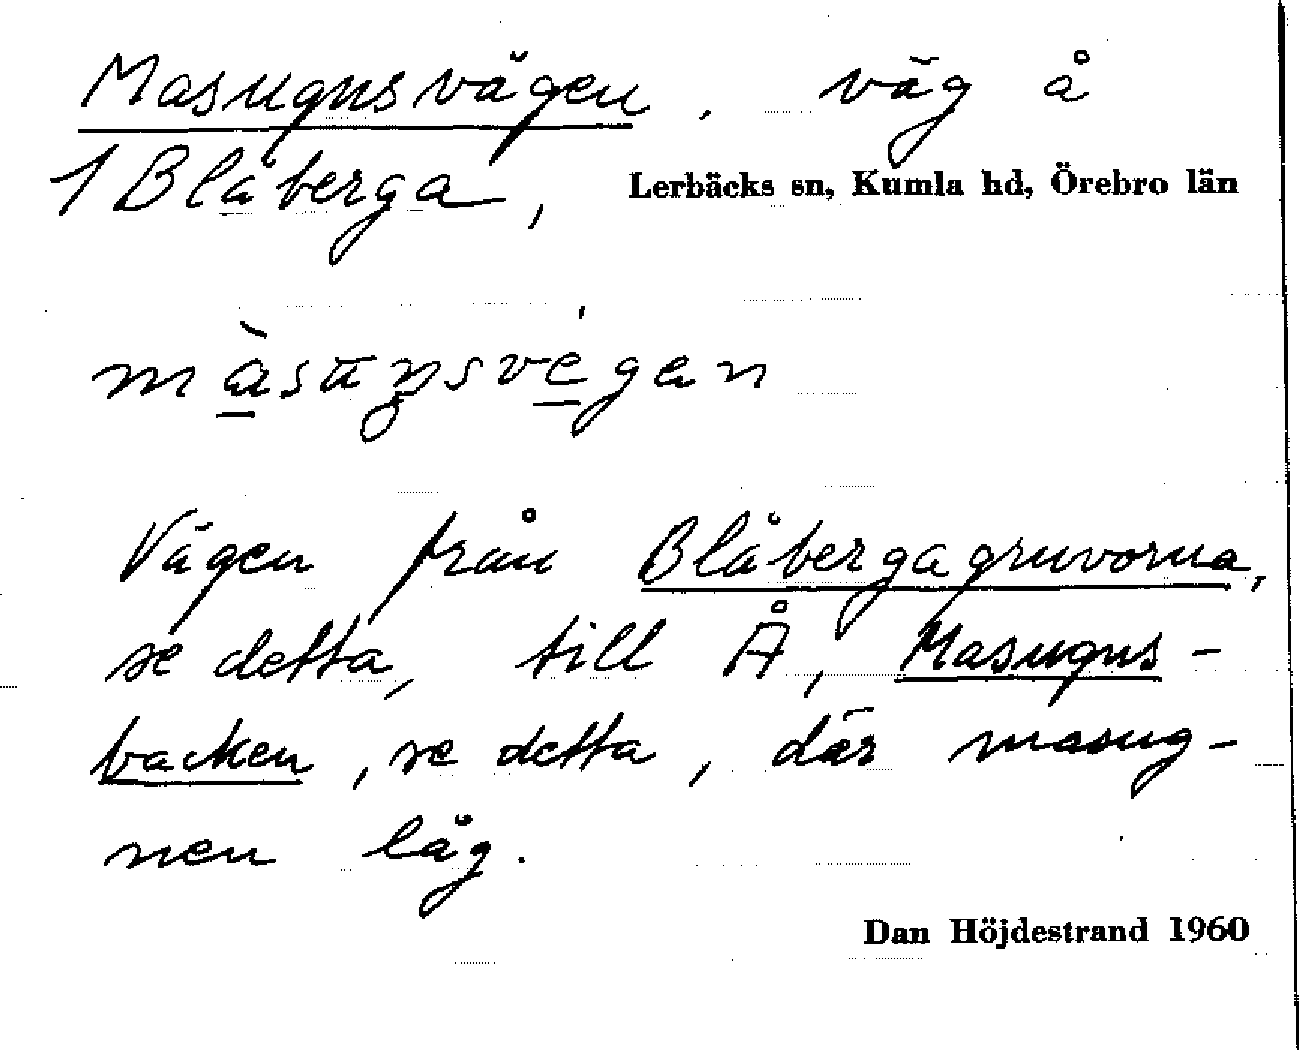 Masugnsvägen. väg å
1 Blåberga, Lerbäcks sn, Kumla hd, Örebro län
Vägen från Blåbergagruvorna,
se detta, till Å, Masugns-
backen, se detta, där masug-
nen låg.
Dan Höjdestrand 1960